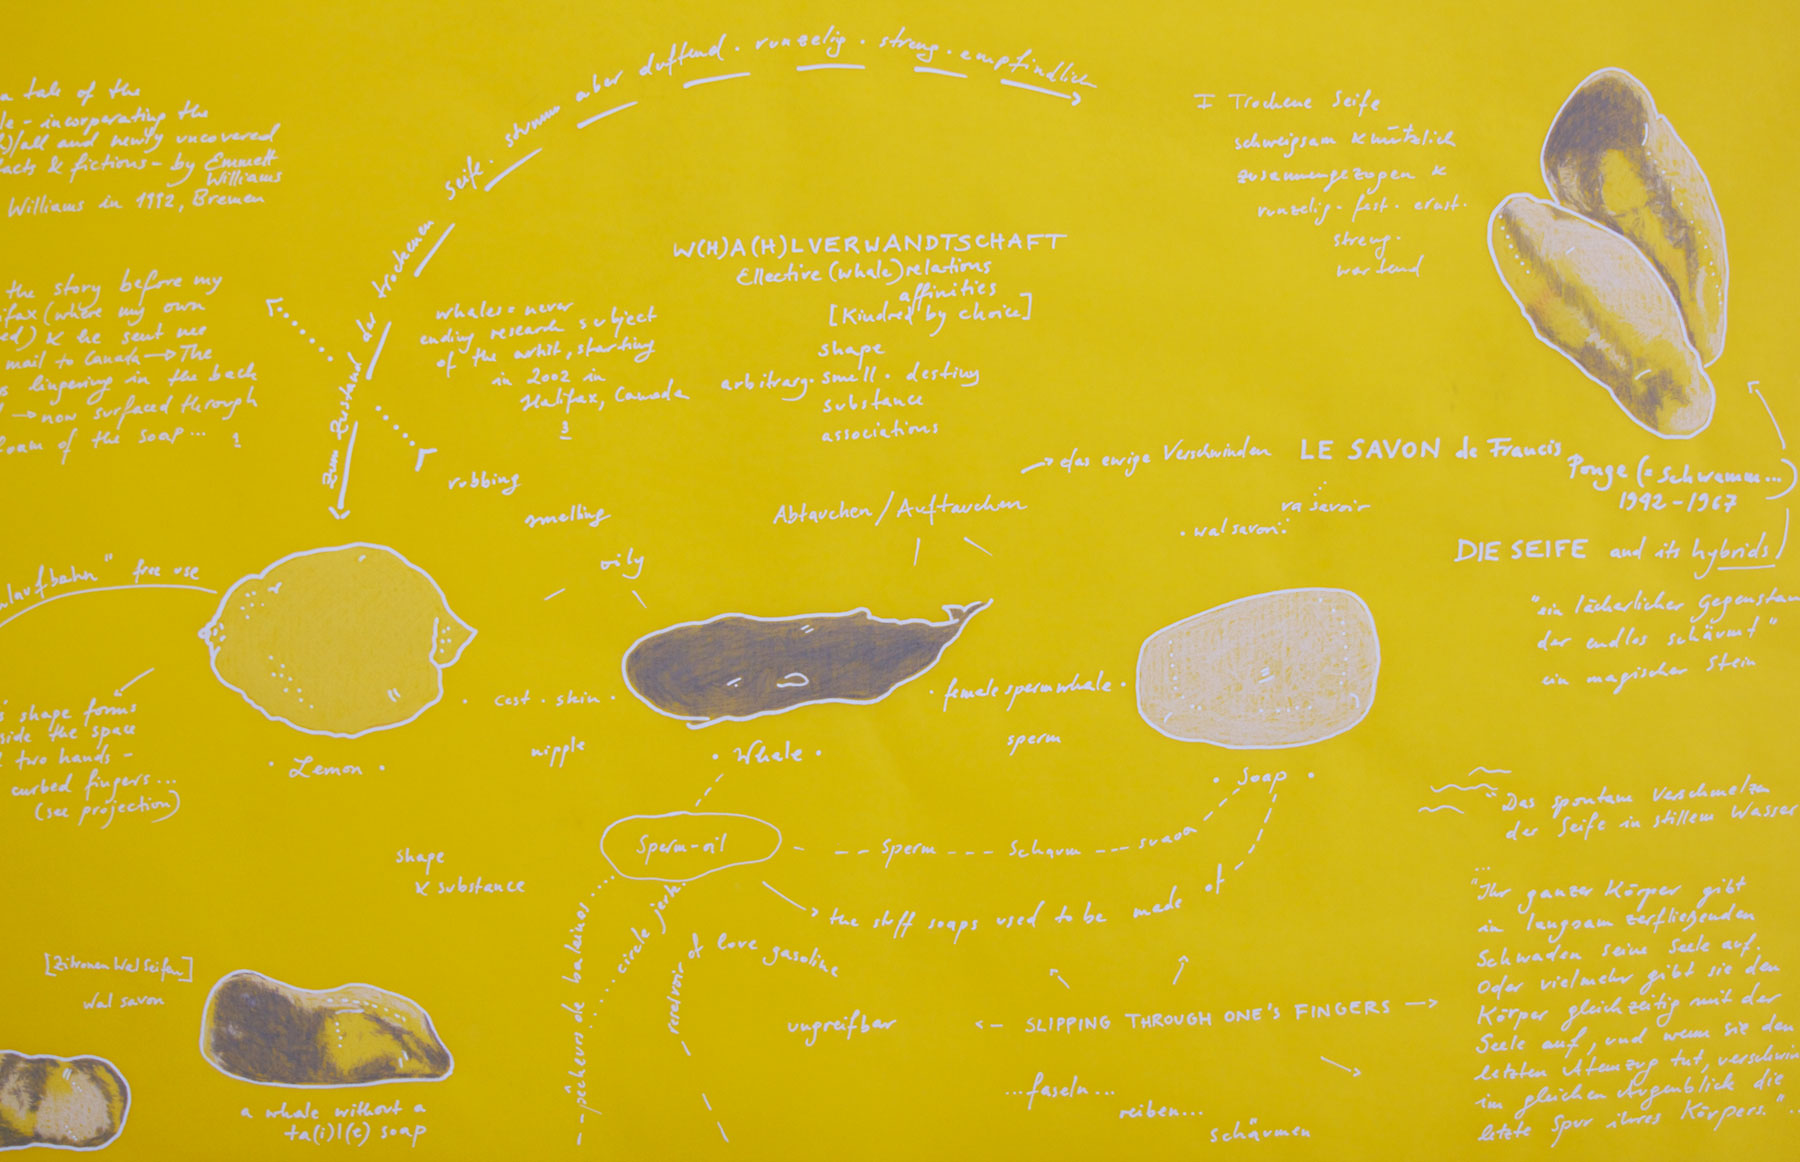 a tale of the
le - incorperating the
h)/all and newly uncovered
facts & fictions - by Emmett
Williams
Williams in 1992, Bremen
the story before my
ifax (where my own
ed) & he sent me
mail to Canada → The
s lingering in the back
→ now surfaced through
foam of the soap... 1
zum Zustand der trockenen Seife. stumm aber duftend. runzelig. streng. empfindlich
whales = never
ending research subject
of the artist, starting
in 2002 in
Halifax, Canada
3
W(H)A(H)LVERWANDTSCHAFT
Ellective (whale) relations
affinities
[Kindred by choice]
shape
arbitrary. smell. destiny
substance
associations
I Trockene Seife
schweigsam & nützlich
zusammengezogen &
runzelig. fest. ernst.
streng.
wartend
→ das ewige Verschwinden
LE SAVON de Francis
Ponge (= Schwamm...)
1942 - 1967
ra savoir
. wal savon
DIE SEIFE and its hybrids
"ein lächerlicher Gegenstan
der endlos schäumt"
ein magischer Stein
Abtauchen / Auftauchen
rubbing
smelling
oily
laufbahn" free use
's shape forms
side the space
two hands -
curbed fingers...
(see projection)
. Lemon .
. cest . skin .
nipple
. Whale .
. female spermwhale .
sperm
. Soap .
Sperm-oil
Sperm --- Schaum --- svaoa
the stuff soaps used to be made of
shape
& substance
pêcheurs de baleines
circle jerk
reservoir of love gasoline
[Zitronen Wal Seifen]
wal savon
a whale without a
ta(i)l(e) soap
ungreifbar
<- SLIPPING THROUGH ONE'S FINGERS →
...faseln...
reiben...
schäumen
"Das spontane Verschmelzen
der Seife in stillem Wasser
...
"Ihr ganzer Körper gibt
in langsam zerfließenden
Schwaden seine Seele auf.
Oder vielmehr gibt sie den
Körper gleichzeitig mit der
Seele auf, und wenn sie den
letzten Atemzug tut, verschwin
im gleichen Augenblick die
letzte Spur ihres Körpers."...